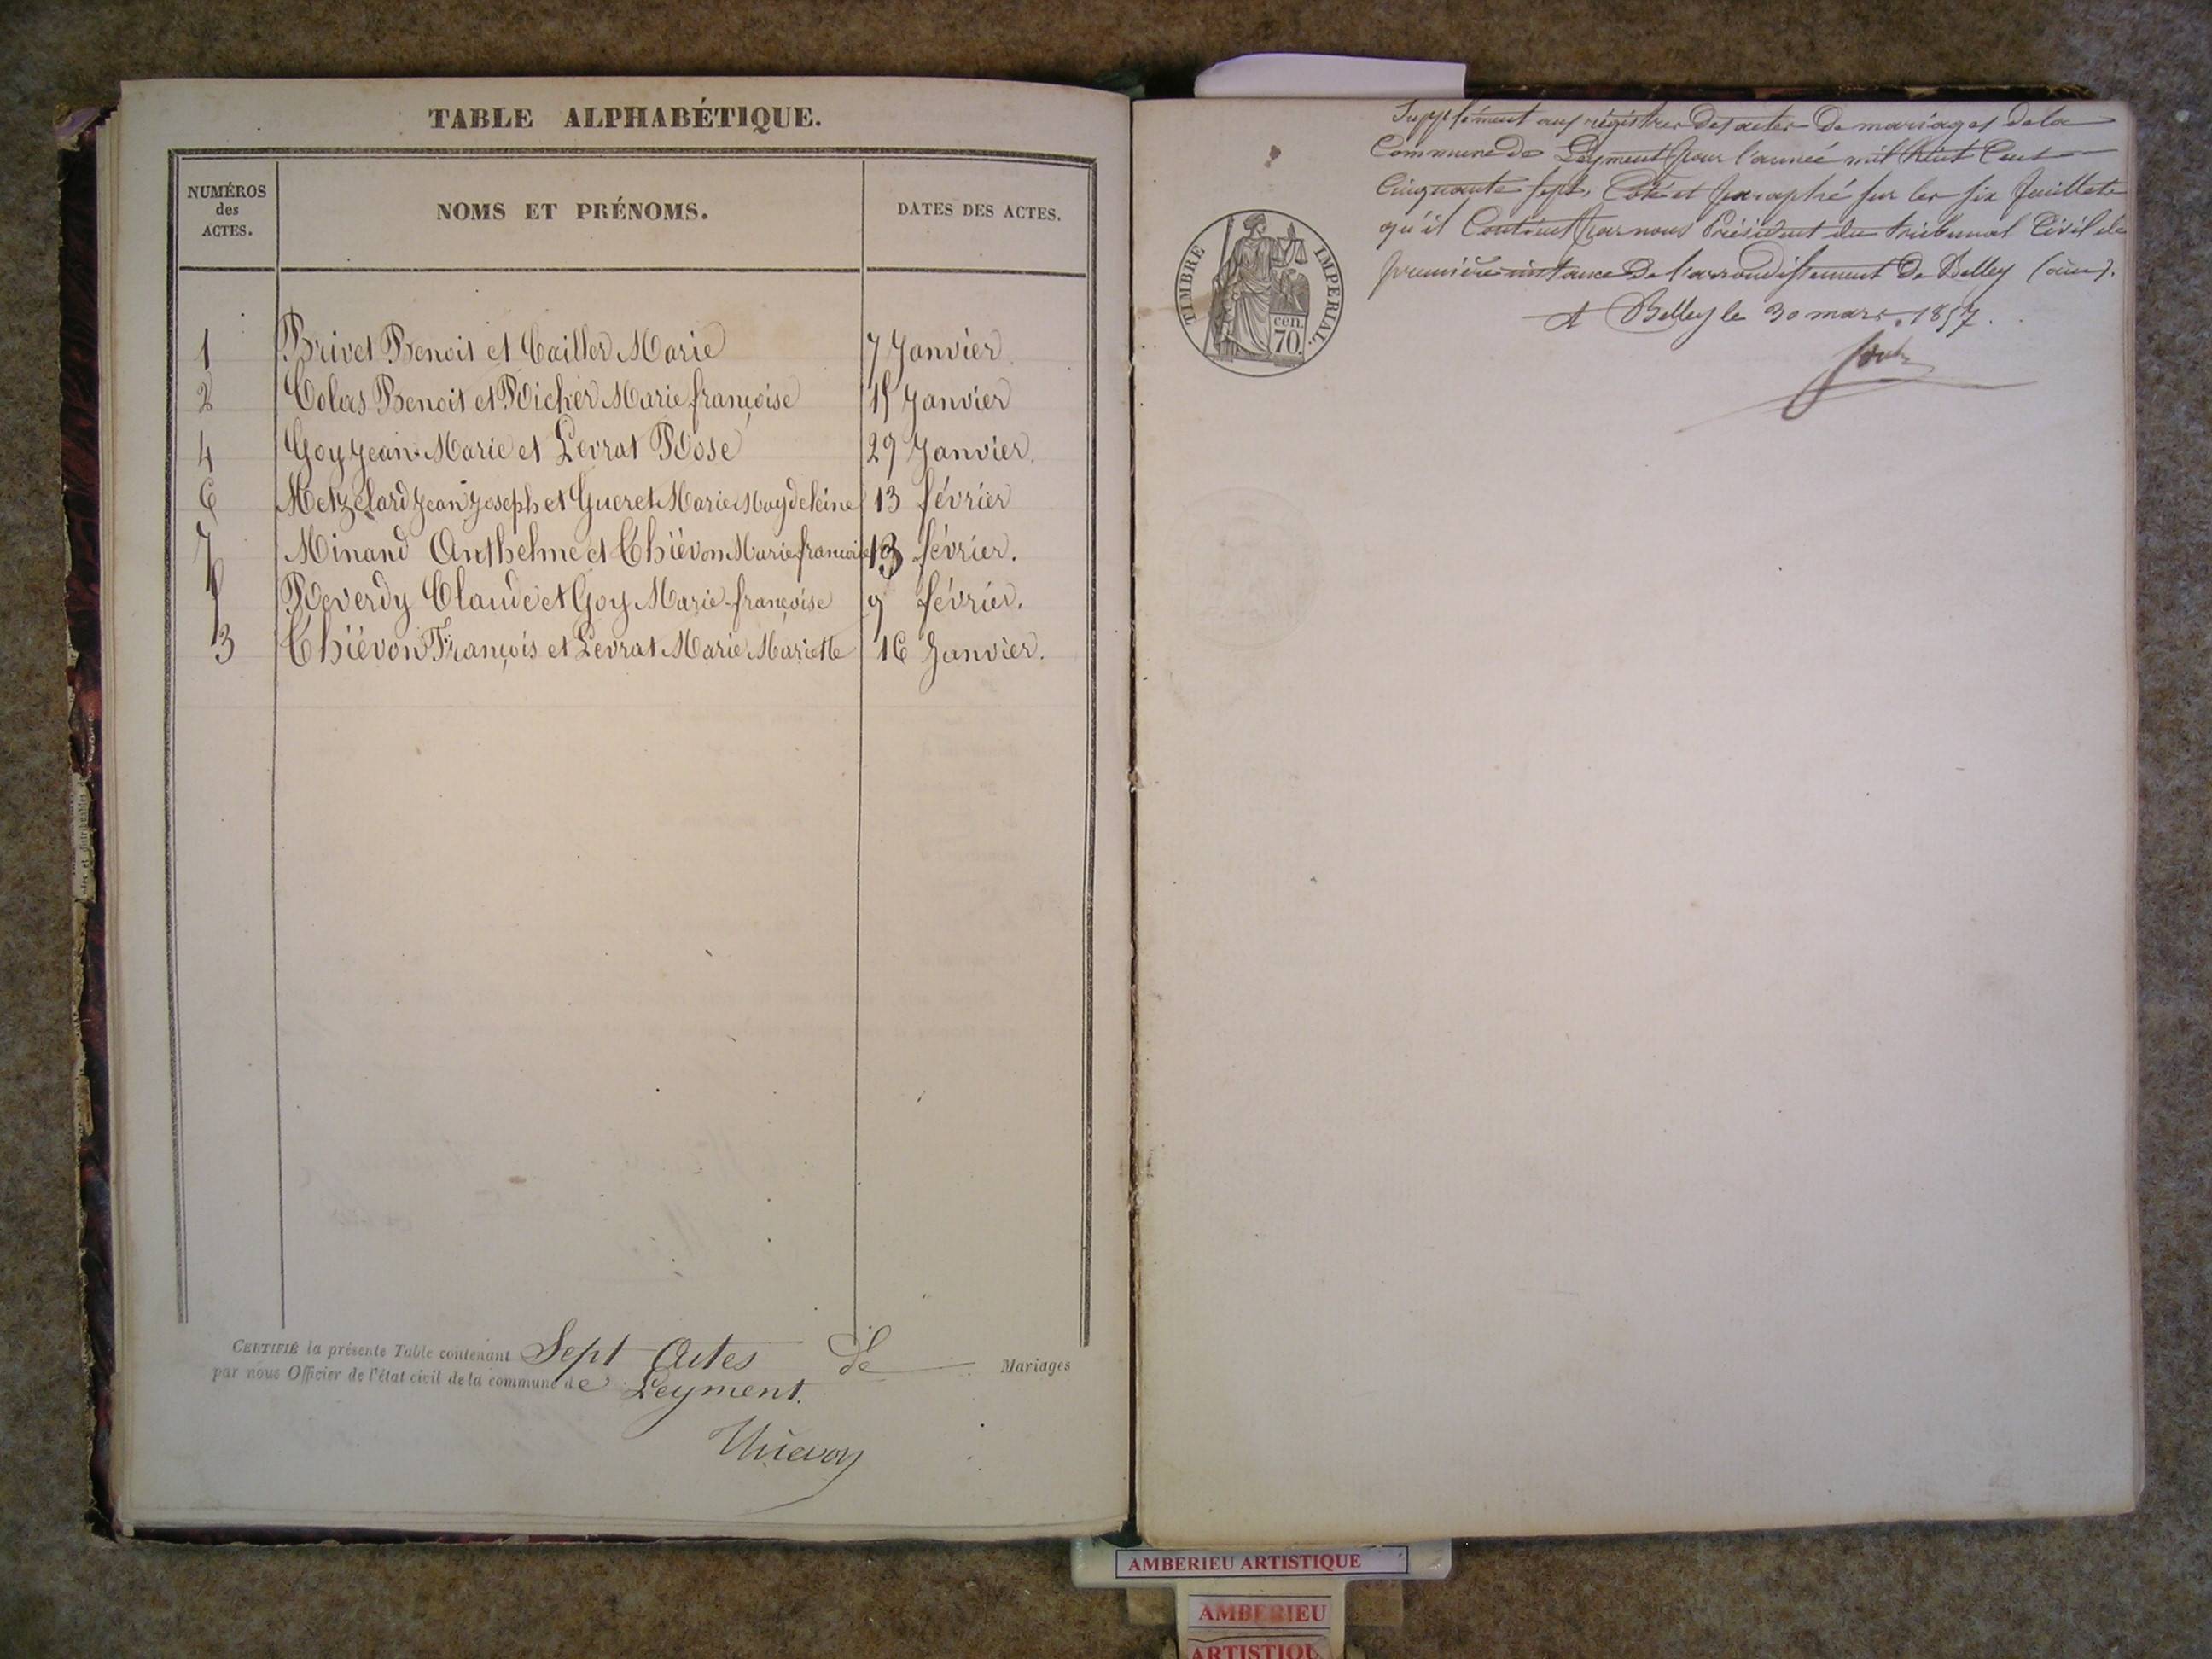 TABLE ALPHABÉTIQUE.
NUMÉROS
des
ACTES.
NOMS ET PRÉNOMS.
DATES DES ACTES.
1 Brivet Benoit et Cailler Marie 7 Janvier
2 Colas Benoit et Richer Marie françoise 15 Janvier
4 Goy Jean-Marie et Levrat Rose 29 Janvier.
6 Metzelard Jean Joseph et Gueret Marie Magdeleine 13 février
7 Minand Anthelme et Thiévon Marie françoise 13 février.
5 Reverdy Claude et Goy Marie françoise 9 février.
3 Thiévon François et Levrat Marie Mariette 16 Janvier.
CERTIFIÉ la présente Table contenant Sept Actes de Mariages
par nous Officier de l'état civil de la commune de Leyment.
Thiévon
Supplément aux régistres des actes de mariages de la
Commune de Leyment pour l'année mil huit Cent
Cinquante sept, Coté et paraphé sur les six feuillets
qu'il Contient par nous Président du tribunal Civil de
première instance de l'arrondissement de Belley (ain).
A Belley le 30 mars 1857.
TIMBRE IMPERIAL.
70 cen.
AMBERIEU ARTISTIQUE
AMBERIEU
ARTISTIQU